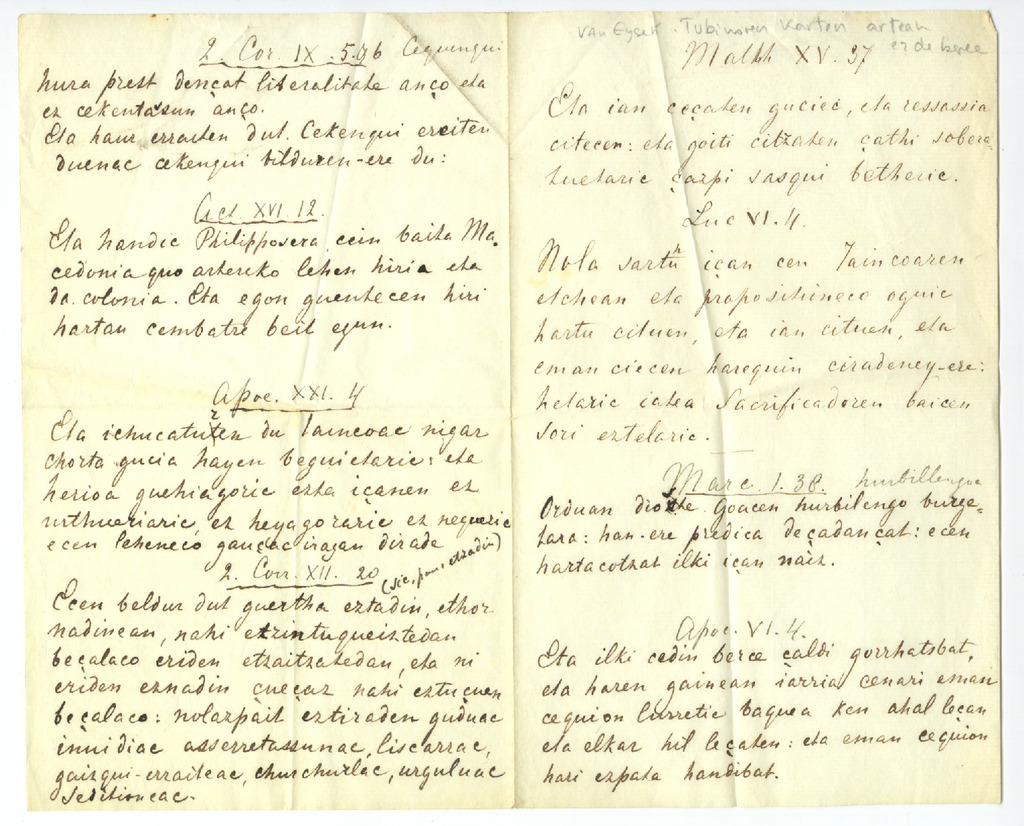 2. Cor. IX. 5.96 Cequengui
hura prest dençat liberalitate anço eta
ez cekentasun anço.
Eta haur erraiten dut. Cekengui ereiten
duenac cekengui bilduren-ere du:
Act. XVI. 12.
Eta handic Philipposera, cein baita Ma-
cedonia quo artereko lehen hiria eta
da colonia. Eta egon guentecen hiri
hartan cembatre beit egun.
Apoc. XXI. 4
Eta ichucaturen du Iaincoac nigar
chorta gucia hayen beguietaric: eta
herioa guehiagoric ezta içanen ez
urthueriaric ez heyagoraric ez negueric
ecen leheneco gauçac iragan dirade
2. Corr. XII. 20 (sic, pour, etzadin)
Ecen beldur dut guertha eztadin, ethor
nadinean, nahi etzintuqueiztedan
beçalaco eriden etzaitzatedan, eta ni
eriden eznadin çueçaz nahi eztuçuen
beçalaco: nolazpait eztiraden guduac
inuidiac asserretassunac, liscarrac,
gaizqui-erraiteac, churchurlac, urguluac
seditioneac.
van Eysek. Tubinoren Karten artean
ez da berea
Matth XV. 37
Eta ian ceçaten guciec, eta ressassia
citecen: eta goiti citzaten çathi sobera-
tuetaric çazpi sasqui betheric.
Luc VI. 4.
Nola sarthu içan cen Iaincoaren
etchean eta propositioneco oguic
hartu cituen, eta ian cituen, eta
eman ciecen harequin ciradeney-ere:
hetaric iatea Sacrificadoren baicen
sori eztelaric.
Marc. 1. 38. hurbillengua
Orduan dioste Goacen hurbilengo burge-
tara: han-ere predica deçadançat: ecen
hartacotzat ilki içan naiz.
Apoc. VI. 4.
Eta ilki cedin berce çaldi gorrhatsbat,
eta haren gainean iarria cenari eman
cequion lurretic baquea ken ahal leçan
eta elkar hil leçaten: eta eman cequion
hari ezpata handibat.